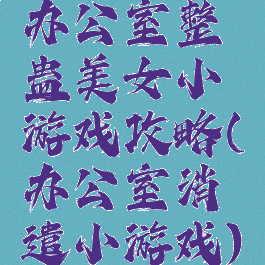 办公室整
蛊美女小
游戏攻略(
办公室消
遣小游戏)